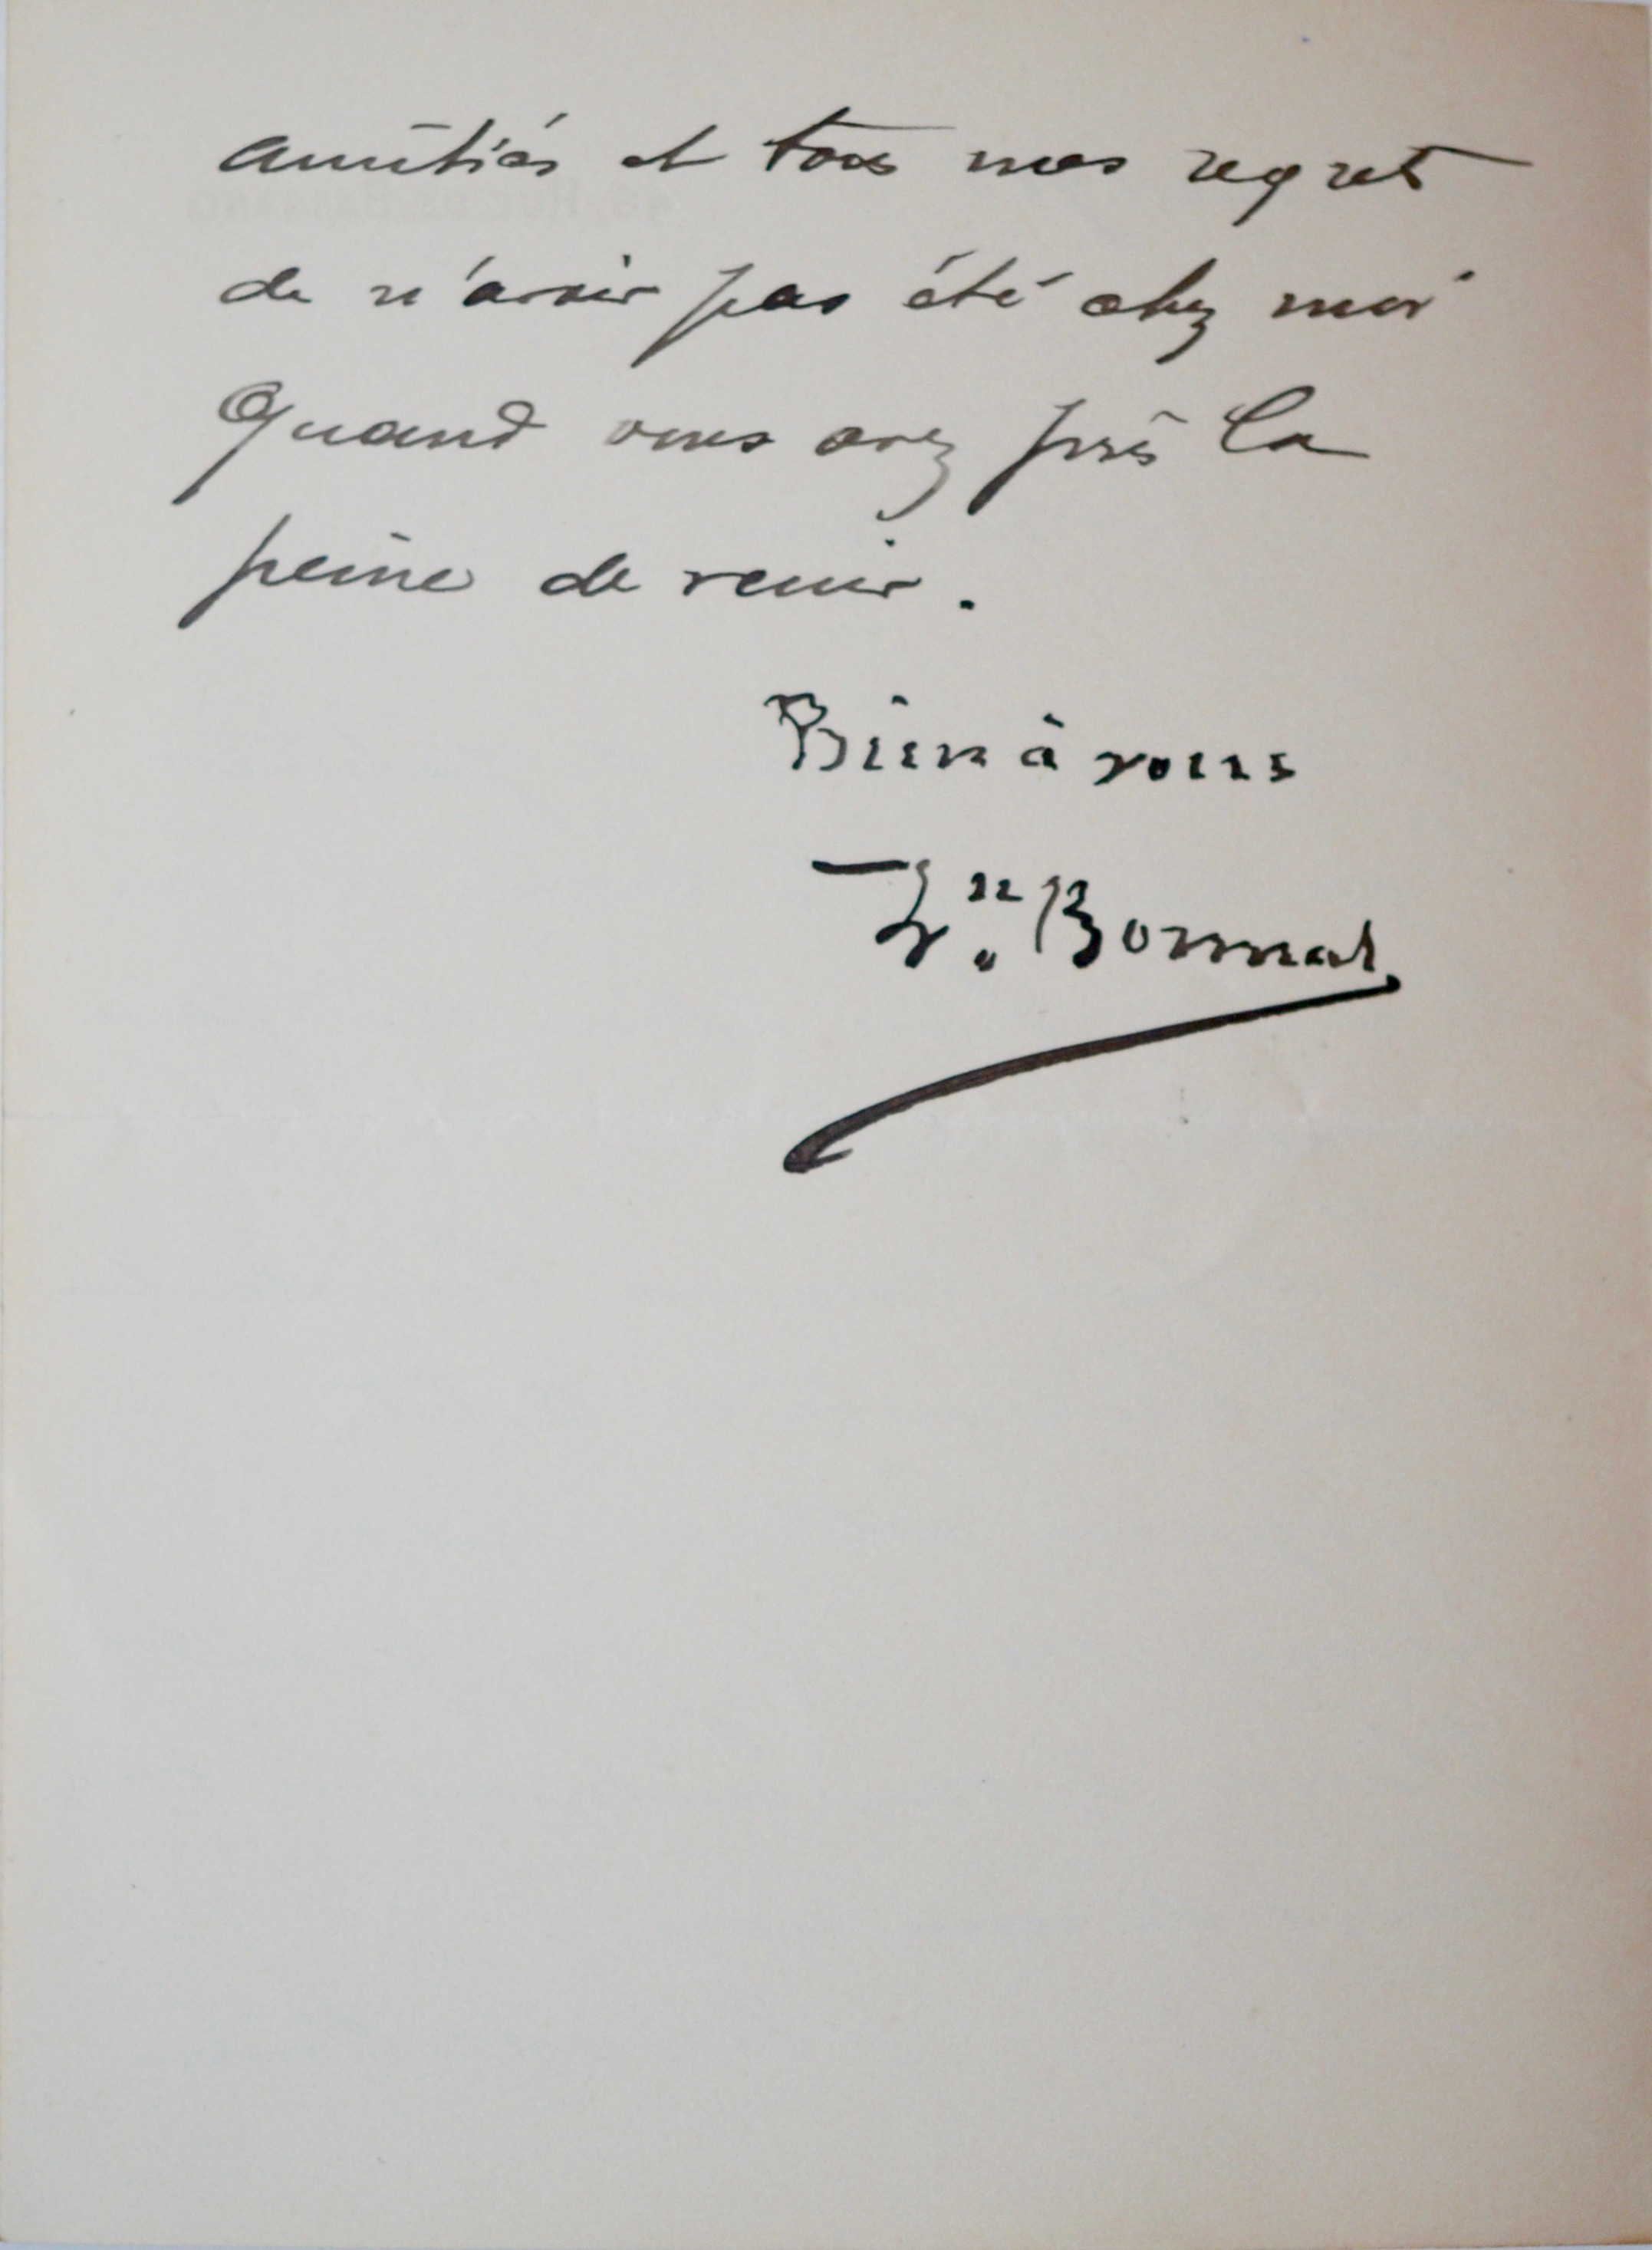 amitiés et tous mes regrets
de n'avoir pas été chez moi
quand vous avez pris la
peine de venir.
Bien à vous
Ln Bonnat
48, RUE DE BASSANO